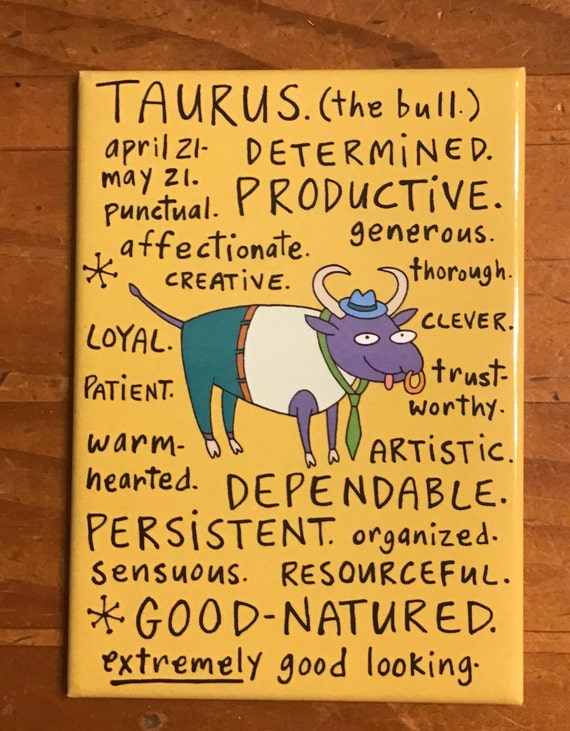 TAURUS. (the bull.)
april 21- DETERMINED.
may 21.
punctual. PRODUCTIVE.
affectionate. generous.
CREATIVE. thorough.
LOYAL. CLEVER.
PATIENT. trust-
worthy.
warm- ARTISTIC.
hearted. DEPENDABLE.
PERSISTENT. organized.
sensuous. RESOURCEFUL.
GOOD-NATURED.
extremely good looking.